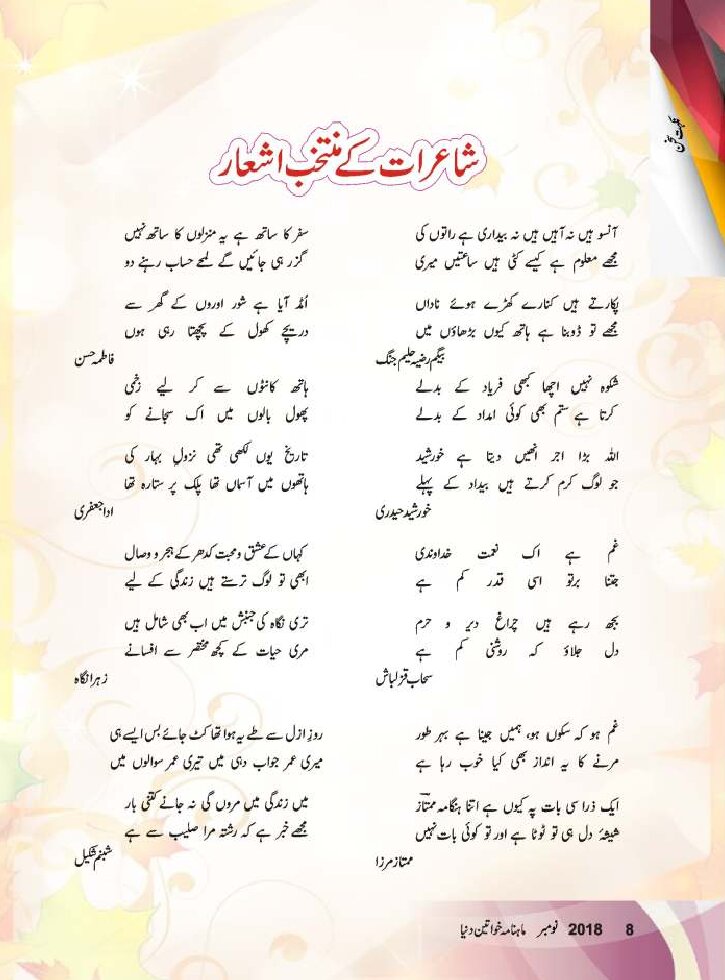 نکہت سخن
شاعرات کے منتخب اشعار
آنسو ہیں نہ آہیں ہیں نہ بیداری ہے راتوں کی
مجھے معلوم ہے کیسے کٹی ہیں ساعتیں میری
پکارتے ہیں کنارے کھڑے ہوئے ناداں
مجھے تو ڈوبنا ہے ہاتھ کیوں بڑھاؤں میں
بیگم رضیہ حلیم جنگ
شکوہ نہیں اچھا کبھی فریاد کے بدلے
کرتا ہے ستم بھی کوئی امداد کے بدلے
اللہ بڑا اجر انھیں دیتا ہے خورشید
جو لوگ کرم کرتے ہیں بیداد کے پہلے
خورشید حیدری
غم ہے اک نعمت خداوندی
جتنا برتو اسی قدر کم ہے
بجھ رہے ہیں چراغ دیر و حرم
دل جلاؤ کہ روشنی کم ہے
سحاب قزلباش
غم ہو کہ سکوں ہو، ہمیں جینا ہے بہر طور
مرنے کا یہ انداز بھی کیا خوب رہا ہے
ایک ذرا سی بات پہ کیوں ہے اتنا ہنگامہ ممتاز
شیشۂ دل ہی تو ٹوٹا ہے اور تو کوئی بات نہیں
ممتاز مرزا
سفر کا ساتھ ہے یہ منزلوں کا ساتھ نہیں
گزر ہی جائیں گے لمحے حساب رہنے دو
اُمڈ آیا ہے شور اوروں کے گھر سے
دریچے کھول کے پچھتا رہی ہوں
فاطمہ حسن
ہاتھ کانٹوں سے کر لیے زخمی
پھول بالوں میں اک سجانے کو
تاریخ یوں لکھی تھی نزولِ بہار کی
ہاتھوں میں آسماں تھا پلک پر ستارہ تھا
ادا جعفری
کہاں کے عشق و محبت کدھر کے ہجر و وصال
ابھی تو لوگ ترستے ہیں زندگی کے لیے
تری نگاہ کی جنبش میں اب بھی شامل ہیں
مری حیات کے کچھ مختصر سے افسانے
زہرا نگاہ
روزِ ازل سے طے یہ ہوا تھا کٹ جائے بس ایسے ہی
میری عمر جواب دہی میں تیری عمر سوالوں میں
میں زندگی میں مروں گی نہ جانے کتنی بار
مجھے خبر ہے کہ رشتہ مرا صلیب سے ہے
شبنم شکیل
8 2018 نومبر ماہنامہ خواتین دنیا